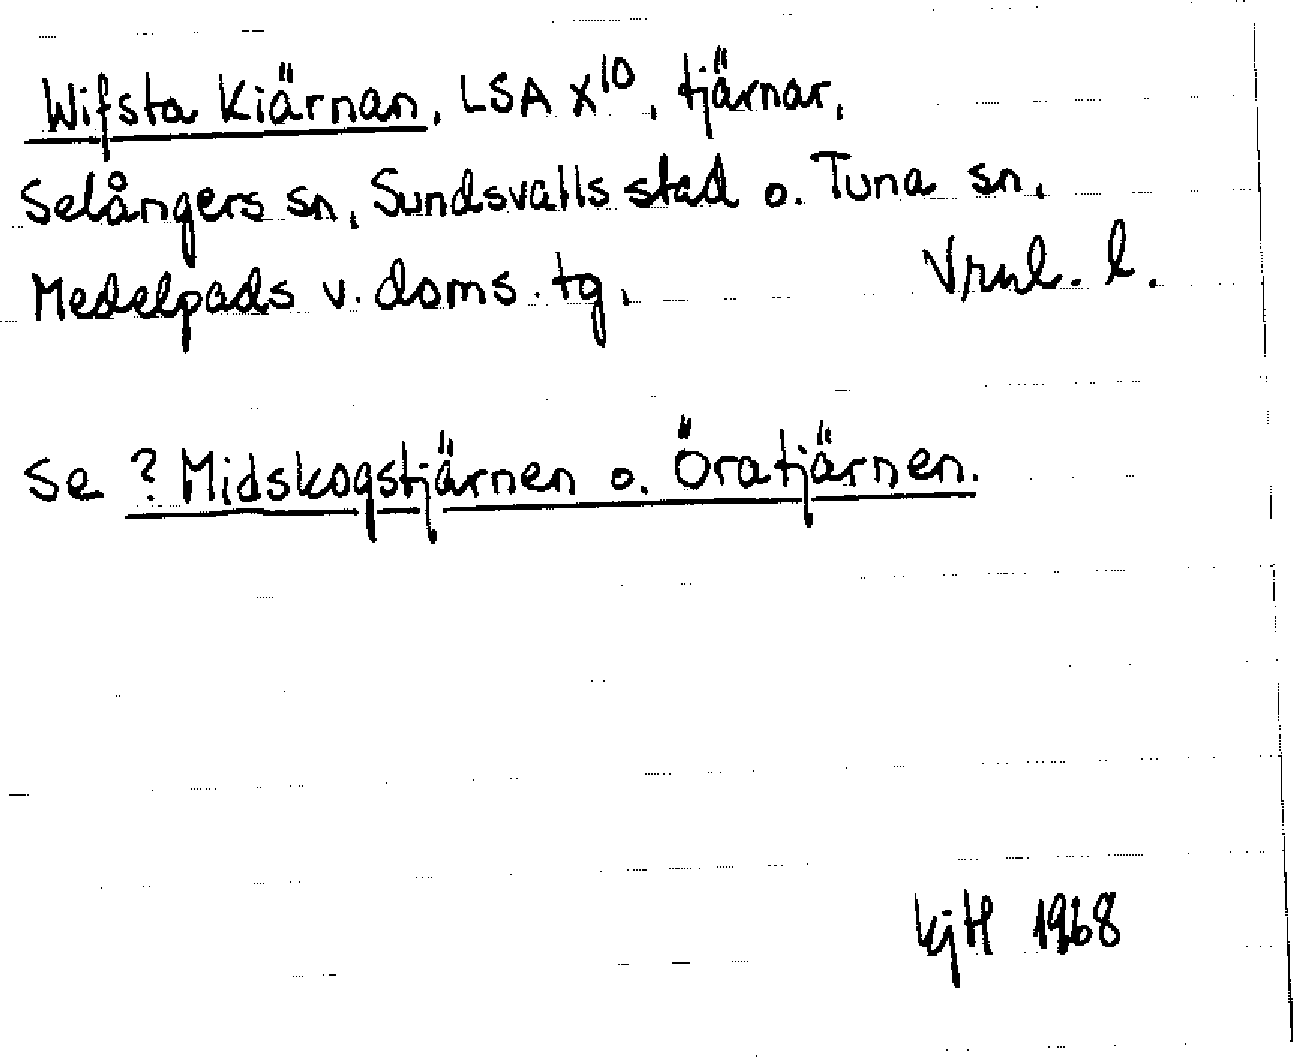 Wifsta Kiärnan, LSA X10, tjärnar,
Selångers sn, Sundsvalls stad o. Tuna sn,
Medelpads v. doms. tg, Vrnl. l.
Se ? Midskogstjärnen o. Öratjärnen.
kjH 1968